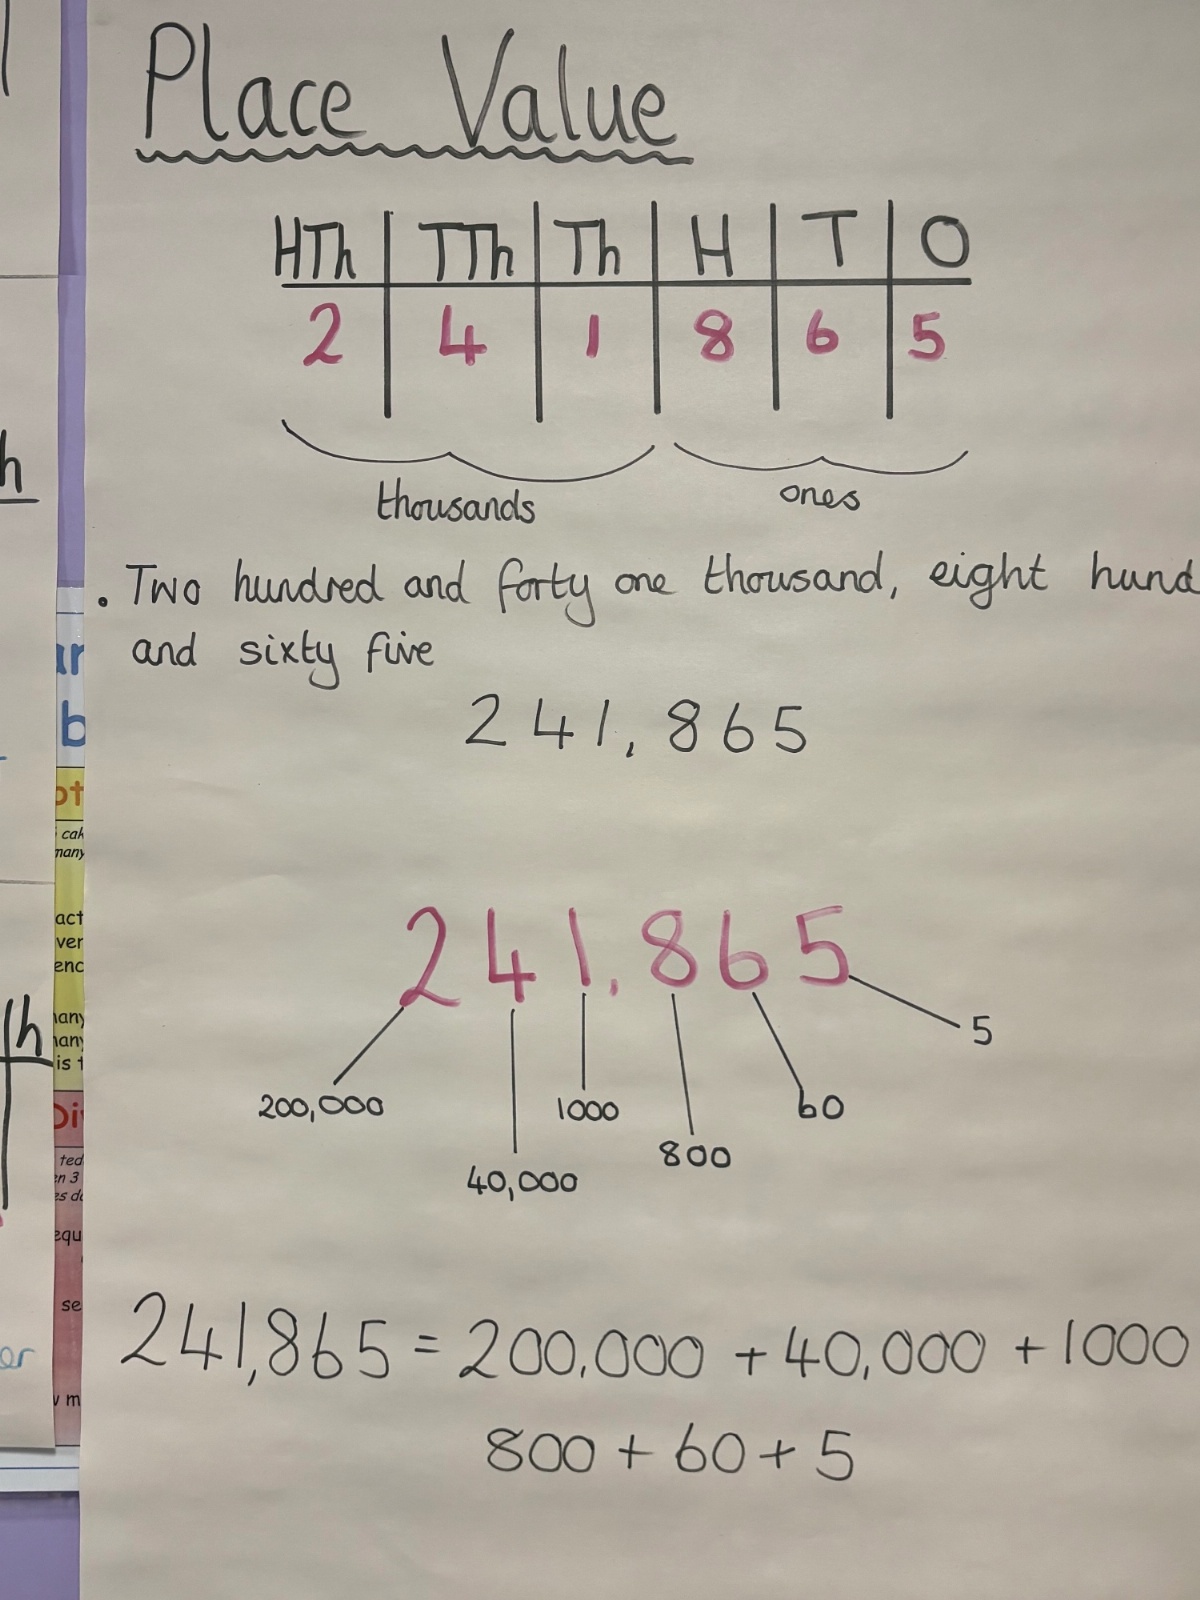 Place Value
HTh TTh Th H T O
2 4 1 8 6 5
thousands ones
. Two hundred and forty one thousand, eight hund
and sixty five
241,865
241,865
5
200,000 1000 60
800
40,000
241,865 = 200,000 + 40,000 + 1000
800 + 60 + 5
h
ar
b
ot
cak
many
act
ver
enc
many
many
is t
Th
Di
ted
en 3
es do
equ
se
er
y m